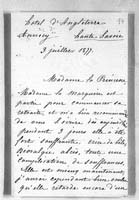 Hotel d'Angleterre
Annecy Haute Savoie
3 juillet 1877.
Madame la Princesse
Madame la Marquise est
partie pour commencer sa
retraite et m'a bien recommandé
de vous écrire
pendant 3 jours elle a été
fort souffrante,
Nevralgie,
complication de souffrances.
Elle est mieux maintenant
j'espère cependant bien
qu'elle retarde encore d'un